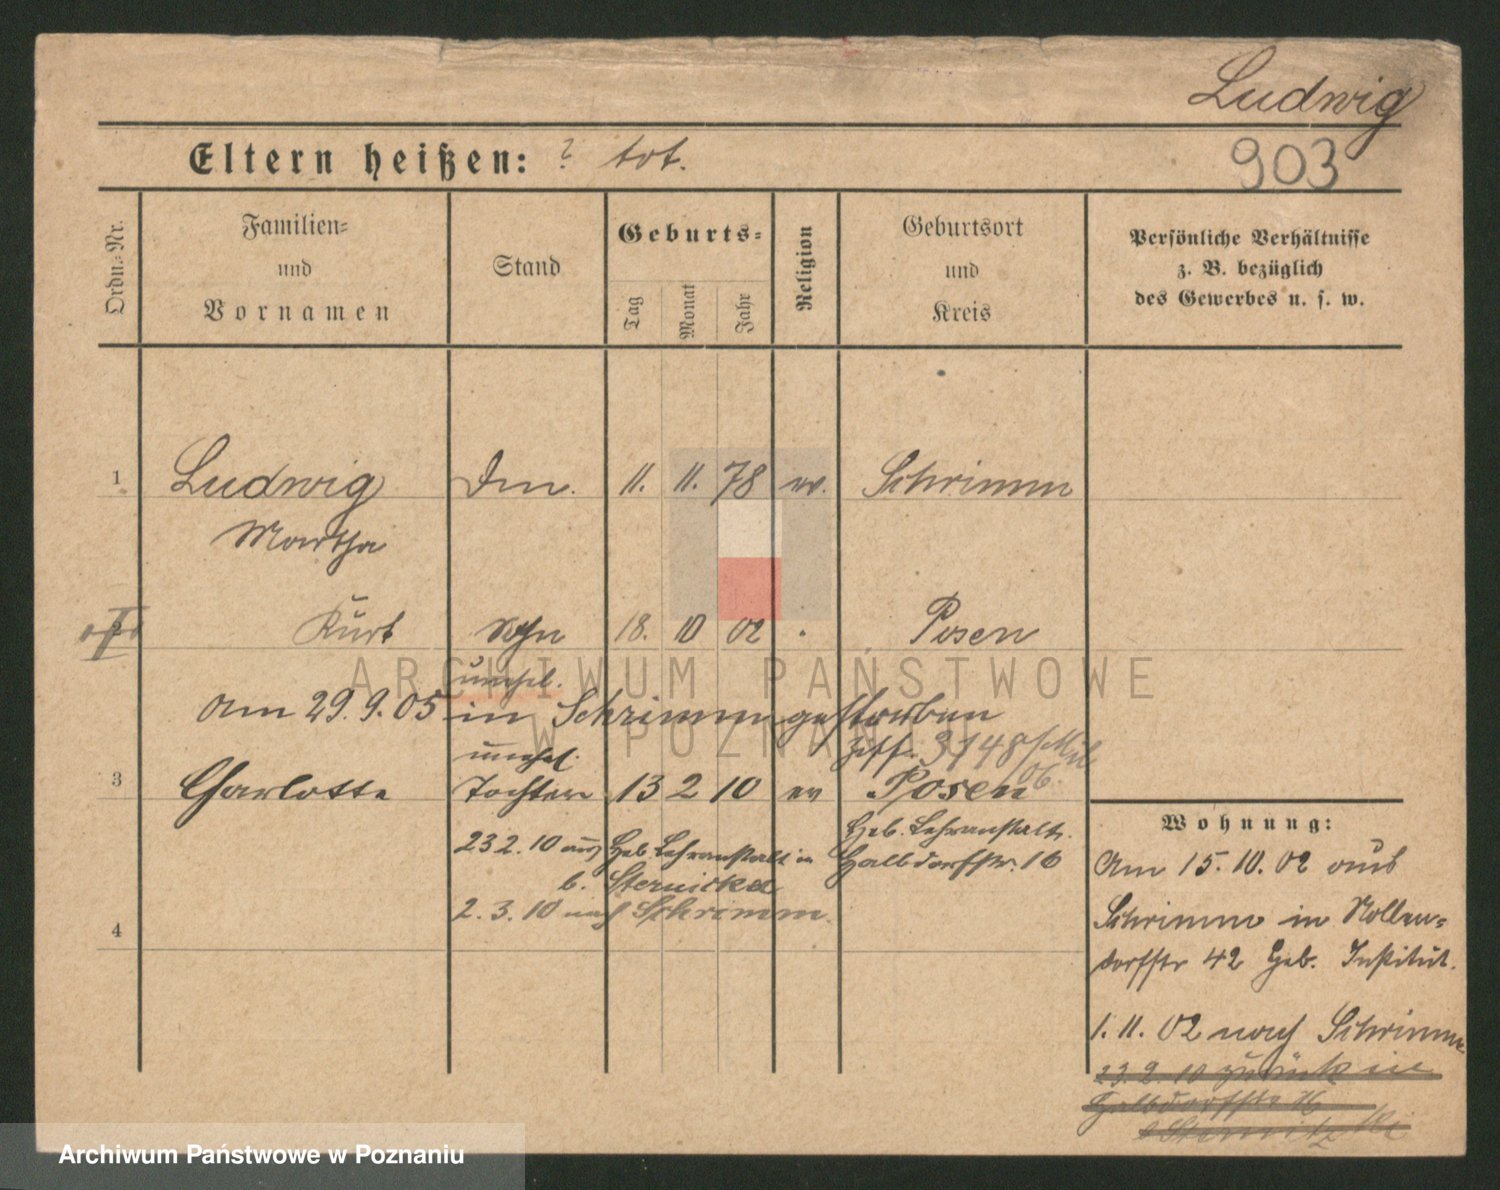 Ludwig
Eltern heißen: ? tot.
903
Ordn.-Nr.
Familien-
und
Vornamen
Stand
Geburts-
Tag
Monat
Jahr
Religion
Geburtsort
und
Kreis
Persönliche Verhältnisse
z. B. bezüglich
des Gewerbes u. s. w.
1 Ludwig 11. 11. 78 ev. Schrimm
Martha
Kurt Sohn 18. 10 02 Posen
unehel.
Am 29. 9. 05 in Schrimm gestorben
3148
unehel.
3 Charlotte Tochter 13 2 10 ev Posen
06.
Heb. Lehranstalt.
Halbdorfstr. 16
23 2. 10 aus Heb. Lehranstalt in
b.
2. 3. 10 nach Schrimm.
4
Wohnung:
Am 15. 10. 02 aus
Schrimm in Nollen-
dorfstr 42 Heb. Institut.
1. 11. 02 nach Schrimm
23. 2. 10 zurück in
Halbdorfstr 16
ARCHIWUM PAŃSTWOWE
W POZNANIU
Archiwum Państwowe w Poznaniu